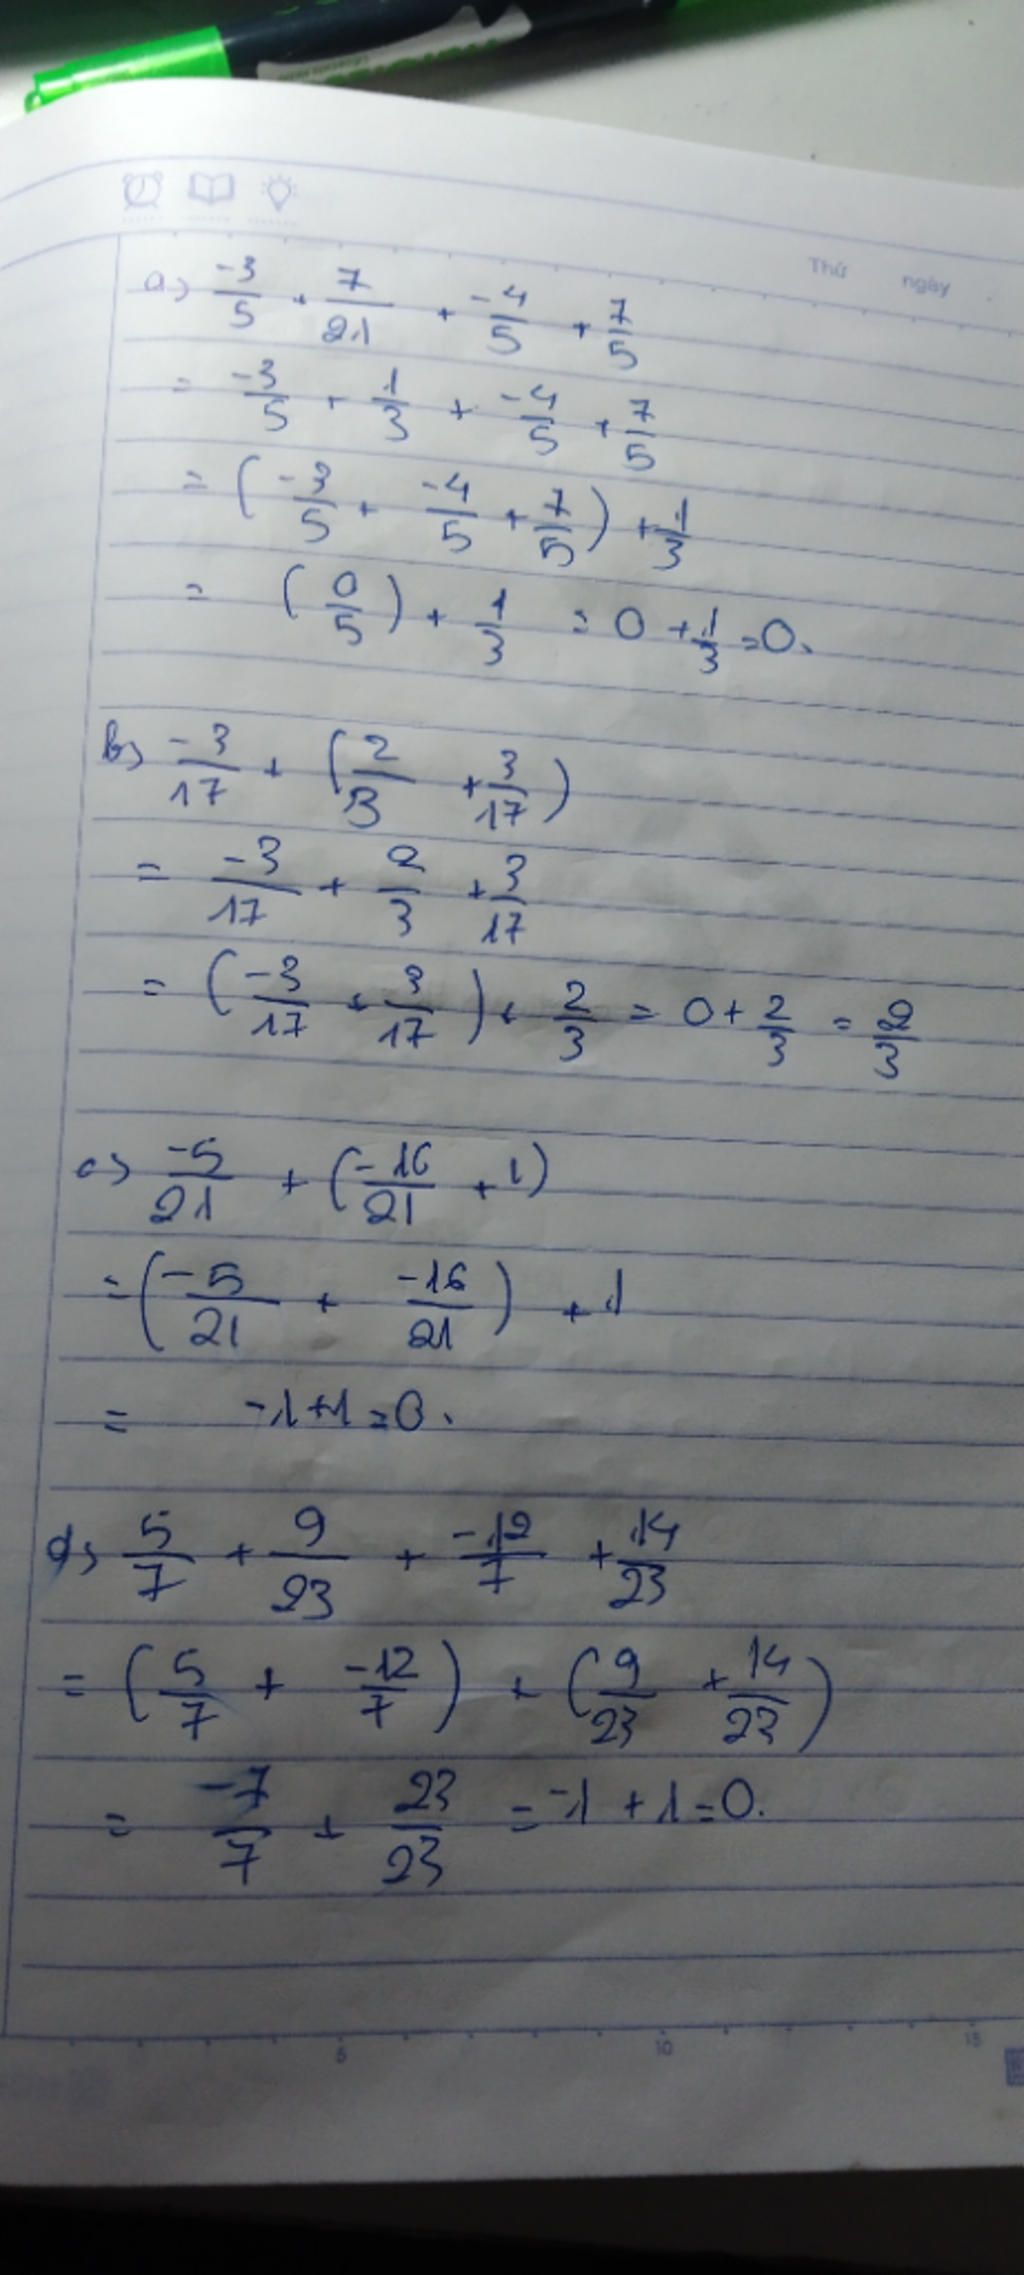 Thứ ngày
a) -3/5 + 7/21 + -4/5 + 7/5
= -3/5 + 1/3 + -4/5 + 7/5
= (-3/5 + -4/5 + 7/5) + 1/3
= (0/5) + 1/3 = 0 + 1/3 = 0.
b) -3/17 + (2/3 + 3/17)
= -3/17 + 2/3 + 3/17
= (-3/17 + 3/17) + 2/3 = 0 + 2/3 = 2/3
c) -5/21 + (-16/21 + 1)
= (-5/21 + -16/21) + 1
= -1+1=0.
d) 5/7 + 9/23 + -12/7 + 14/23
= (5/7 + -12/7) + (9/23 + 14/23)
= -7/7 + 23/23 = -1 + 1 = 0.
5 10 15